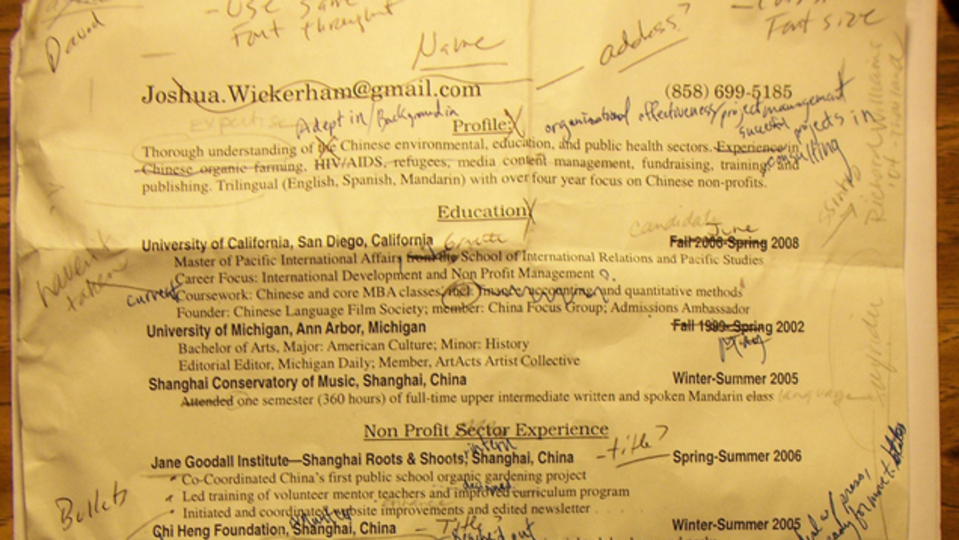 - Use same
Font throughout
David
Name
address?
Font size
Joshua.Wickerham@gmail.com
(858) 699-5185
expertise
Adept in/Background in
organizational effectiveness/project management
successful projects in
consulting
Profile:
Thorough understanding of the Chinese environmental, education, and public health sectors. Experience in
Chinese organic farming, HIV/AIDS, refugees, media content management, fundraising, training, and
publishing. Trilingual (English, Spanish, Mandarin) with over four year focus on Chinese non-profits.
Education
candidate
June
University of California, San Diego, California
Fall 2006-Spring 2008
Master of Pacific International Affairs from the School of International Relations and Pacific Studies
Career Focus: International Development and Non Profit Management ?
haven't
taken
current
Coursework: Chinese and core MBA classes, incl. finance, accounting, and quantitative methods
Founder: Chinese Language Film Society; member: China Focus Group; Admissions Ambassador
University of Michigan, Ann Arbor, Michigan
Fall 1999-Spring 2002
May
Bachelor of Arts, Major: American Culture; Minor: History
Editorial Editor, Michigan Daily; Member, ArtActs Artist Collective
Shanghai Conservatory of Music, Shanghai, China
Winter-Summer 2005
Attended one semester (360 hours) of full-time upper intermediate written and spoken Mandarin class
language
Non Profit Sector Experience
intern
Jane Goodall Institute—Shanghai Roots & Shoots, Shanghai, China
- title?
Spring-Summer 2006
Co-Coordinated China's first public school organic gardening project
Led training of volunteer mentor teachers and improved curriculum program
Initiated and coordinated website improvements and edited newsletter
Bullets
Chi Heng Foundation, Shanghai, China
- Title?
Winter-Summer 2005
reached out